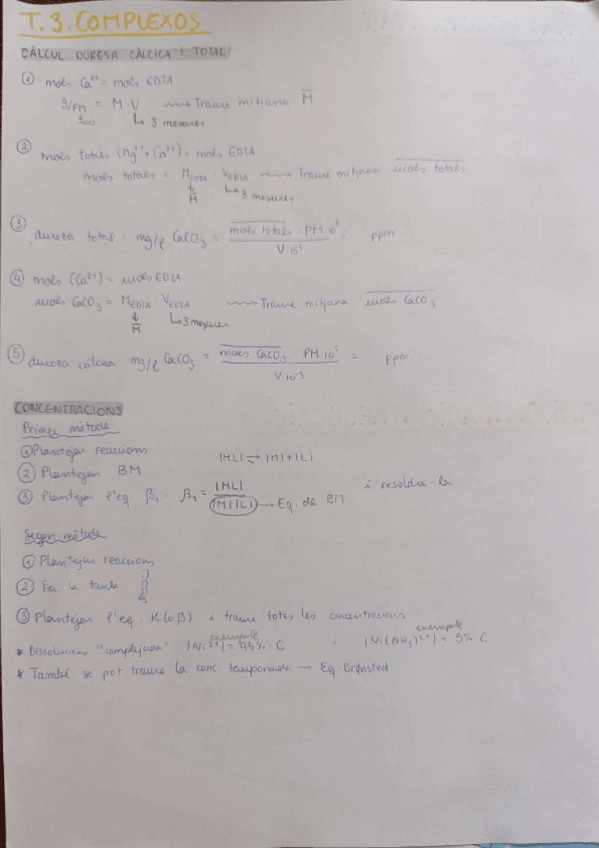 T.3. COMPLEXOS
CÀLCUL DURESA CÀLCICA I TOTAL
① mols Ca²⁺ = mols EDTA
g/PM = M V ⟿ Traure mitjana M̅
100 ↳ 3 mesures
② mols totals (Mg²⁺ + Ca²⁺) = mols EDTA
mols totals = M_EDTA · V_EDTA ⟿ Traure mitjana mols totals
↓ M̅ ↳ 3 mesures
③ duresa total = mg/l CaCO₃ = mols totals · PM 10³ / V · 10⁻³ = ppm
④ mols (Ca²⁺) = mols EDTA
mols CaCO₃ = M_EDTA V_EDTA ⟿ Traure mitjana mols CaCO₃
↓ M̅ ↳ 3 mesures
⑤ duresa càlcica = mg/l CaCO₃ = mols CaCO₃ · PM 10³ / V · 10⁻³ = ppm
CONCENTRACIONS
Primer mètode
① Plantejar reaccions |ML| ⇌ |M| + |L|
② Plantejar BM
③ Plantejar l'eq β₁ · β₁ = |ML| / |M||L| → Eq. de BM i resoldre-la
Segon mètode
① Plantejar reaccions
② Fer la taula i) f) eq)
③ Plantejar l'eq. K (o β) i traure totes les concentracions
* Dissolucions "complejada" exemple |Ni²⁺| = 95% · C , exemple |Ni(NH₃)²⁺| = 5% C
* També se pot traure la conc. tamponada → Eq. Brønsted